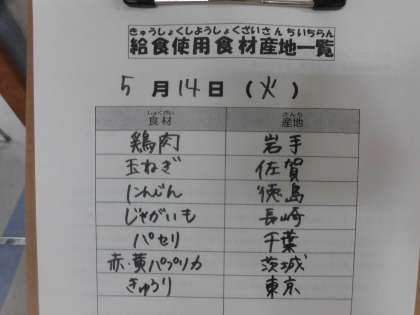 きゅうしょくしようしょくざいさんちいちらん
給食使用食材産地一覧
5月14日(火)
しょくざい さんち
食材 産地
鶏肉 岩手
玉ねぎ 佐賀
にんじん 徳島
じゃがいも 長崎
パセリ 千葉
赤・黄パプリカ 茨城
きゅうり 東京